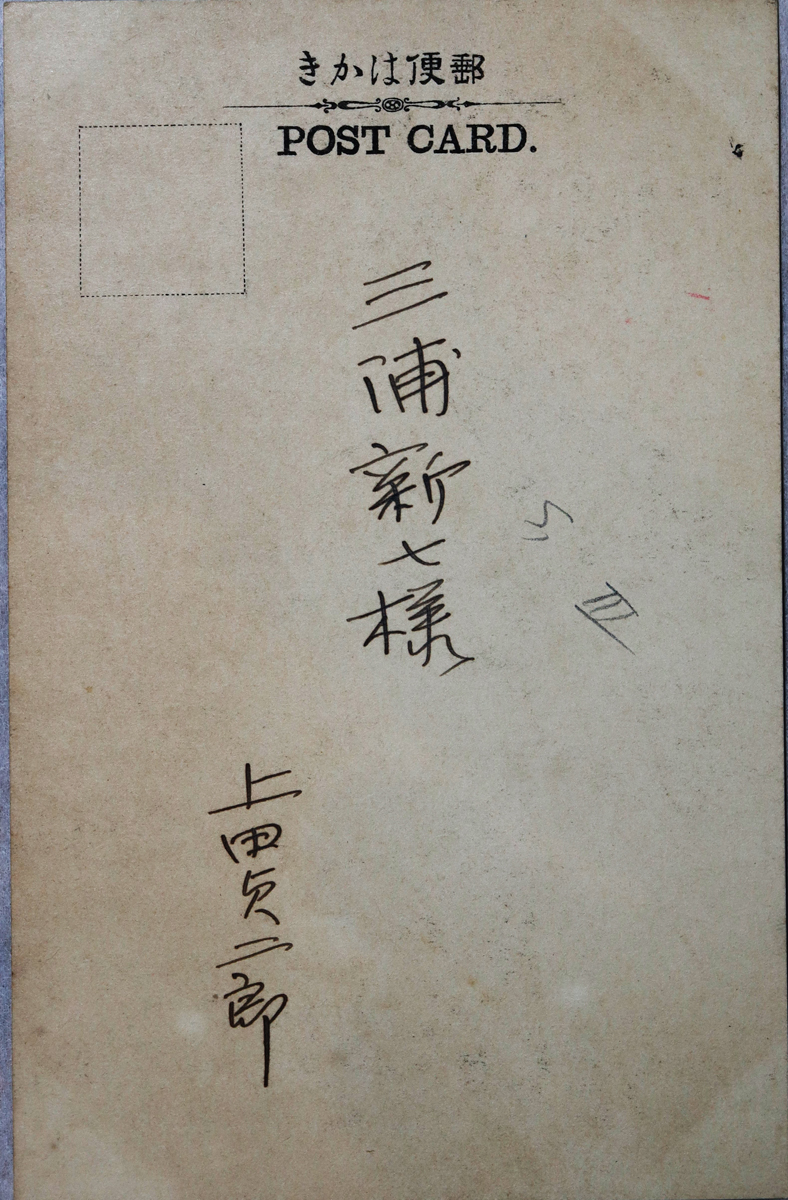 きかは便郵
POST CARD.
三浦新七様
上田貞二郎